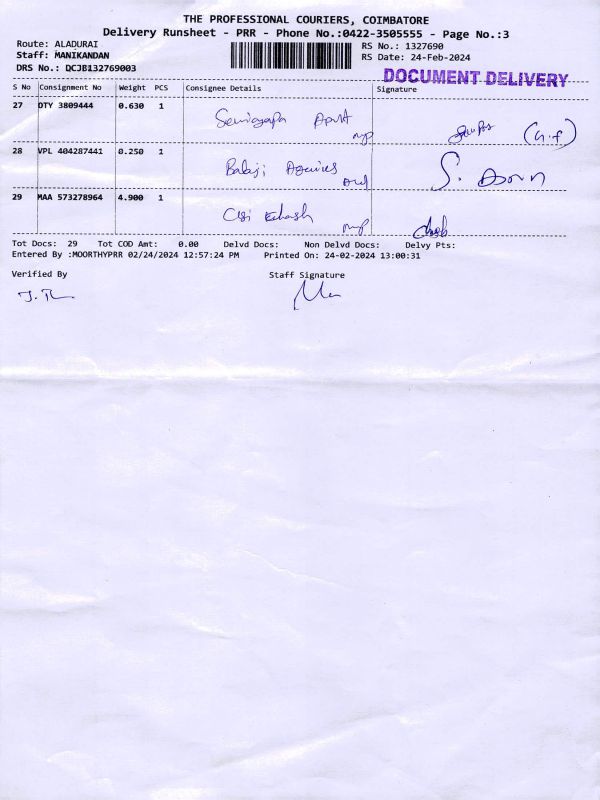 THE PROFESSIONAL COURIERS, COIMBATORE
Delivery Runsheet - PRR - Phone No.:0422-3505555 - Page No.:3
Route: ALADURAI RS No.: 1327690
Staff: MANIKANDAN RS Date: 24-Feb-2024
DRS No.: DCJB132769003
DOCUMENT DELIVERY
S No Consignment No Weight PCS Consignee Details Signature
27 DTY 3809444 0.630 1
28 VPL 404287441 0.250 1
Balaji
29 MAA 573278964 4.900 1
Tot Docs: 29 Tot COD Amt: 0.00 Delvd Docs: Non Delvd Docs: Delvy Pts:
Entered By :MOORTHYPRR 02/24/2024 12:57:24 PM Printed On: 24-02-2024 13:00:31
Verified By Staff Signature